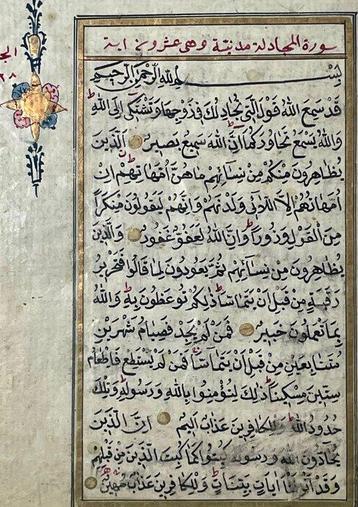 سورة المجادلة مدنية وهي عشرون اية
بسم الله الرحمن الرحيم
قد سمع الله قول التي تجادلك في زوجها وتشتكي الى الله
والله يسمع تحاوركما ان الله سميع بصير الذين
يظاهرون منكم من نسائهم ما هن امهاتهم ان
امهاتهم الا اللائي ولدنهم وانهم ليقولون منكرا
من القول وزورا وان الله لعفو غفور والذين
يظاهرون من نسائهم ثم يعودون لما قالوا فتحرير
رقبة من قبل ان يتماسا ذلكم توعظون به والله
بما تعملون خبير فمن لم يجد فصيام شهرين
متتابعين من قبل ان يتماسا فمن لم يستطع فاطعام
ستين مسكينا ذلك لتؤمنوا بالله ورسوله وتلك
حدود الله وللكافرين عذاب اليم ان الذين
يحادون الله ورسوله كبتوا كما كبت الذين من قبلهم
وقد انزلنا ايات بينات وللكافرين عذاب مهين